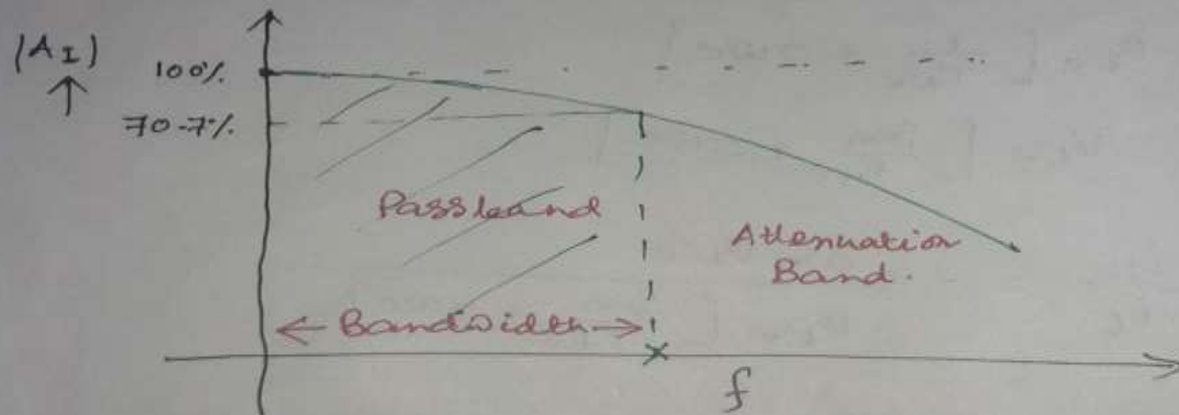 |A_I|
↑
100%
70.7%
Passband
Attenuation
Band.
← Bandwidth →
f